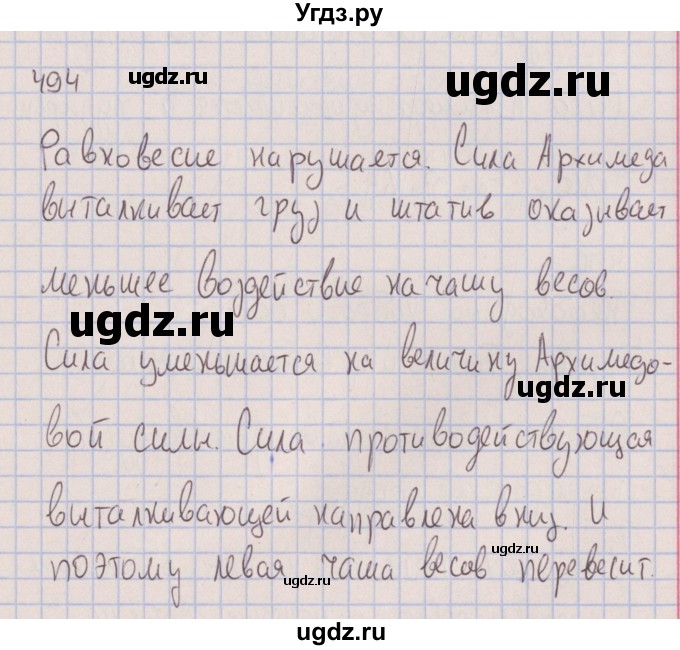 Угдз.ру
494
ugdz.ru
ugdz.ru
Равновесие нарушается. Сила Архимеда
выталкивает груз и штатив оказывает
ugdz.ru
меньшее воздействие на чашу весов.
ugdz.ru
Сила уменьшается на величину Архимедо-
ugdz.ru
вой силы. Сила противодействующая
выталкивающей направлена вниз. И
ugdz.ru
поэтому левая чаша весов перевесит.
ugdz.ru
ugdz.ru